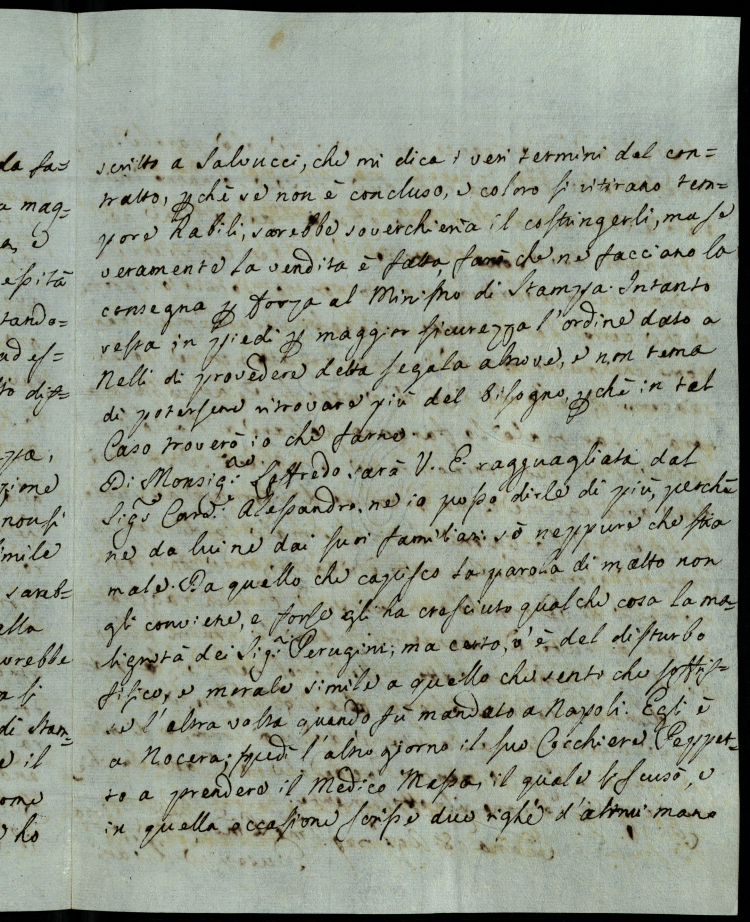 da fa=
a mag=
e
essità
tando=
ad es=
to dist=
zza,
zione
non si
imile
sareb=
alla
vrebbe
a si
di Stam=
e il
ome
e ho
scritto a Salvucci, che mi dica i veri termini del con=
tratto, pchè se non è concluso, e coloro si ritirano tem=
pore habili, sarebbe soverchieria il costringerli, ma se
veramente la vendita è fatta, farò che ne facciano la
consegna p forza al Ministro di Stampa. Intanto
resta in piedi p maggior sicurezza l'ordine dato a
Nelli di provedere detta segala altrove, e non tema
di potersene ritrovare più del bisogno, pchè in tal
Caso troverò io che farne
Di Monsig.re Loffredo sarà V. E. ragguagliata dal
Sig.r Card.e Alessandro, ne io posso dirle di più, perchè
ne da lui ne dai suoi familiari sò neppure che stia
male. Da quello che capisco la parola di matto non
gli conviene, e forse gli ha cresciuto qualche cosa la ma=
lignità dei Sig.i Perugini; ma certo, v'è del disturbo
fisico, e morale simile a quello che sento che soffris=
se l'altra volta quando fù mandato a Napoli. Egli è
a Nocera; spedì l'altro giorno il suo Cocchiere Peppet=
to a prendere il Medico Massa, il quale si scusò, e
in quella occasione scrisse due righe d'altrui mano